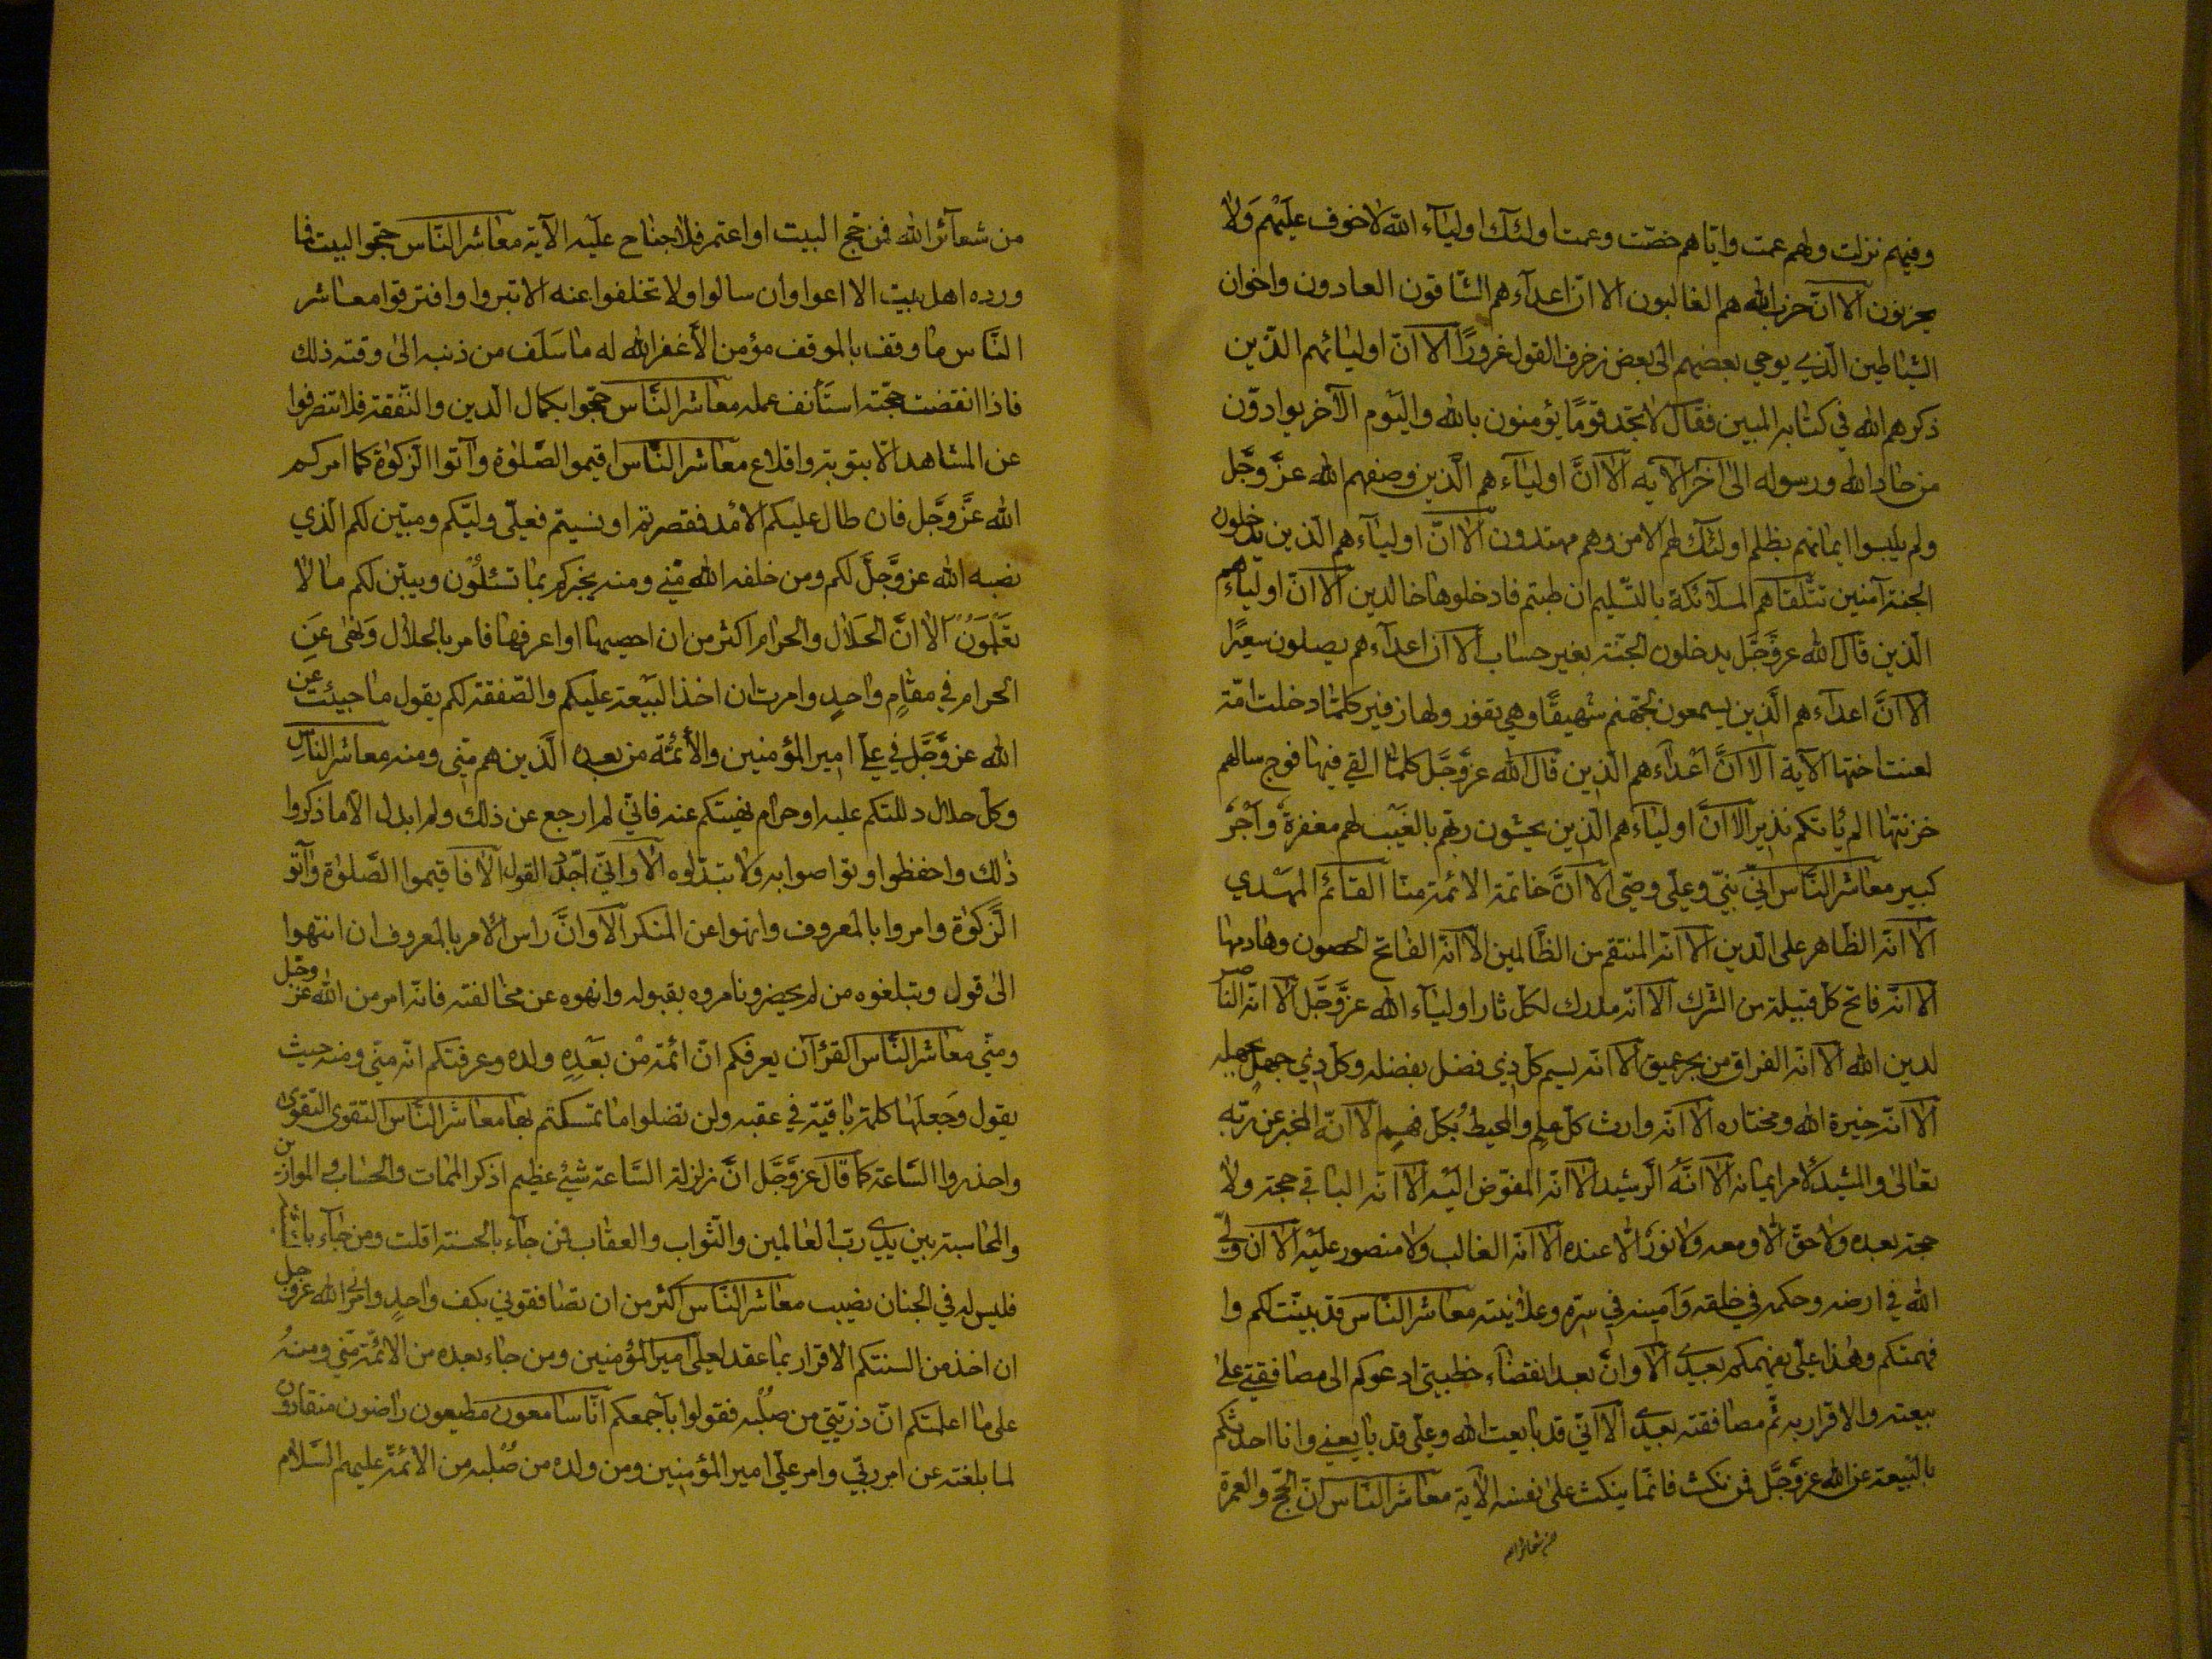 وفيهم نزلت ولهم عمت واياهم خصّت وعمت اولئك اولياء الله لا خوف عليهم ولا
يحزنون الا انّ حزب الله هم الغالبون الا انّ اعداءهم الشّاقون العادون واخوان
الشياطين الّذي يوحي بعضهم الى بعض زخرف القول غرورًا الا انّ اوليائهم الذّين
ذكرهم الله في كتابه المبين فقال لا تجد قومًا يؤمنون بالله واليوم الآخر يوادّون
من حادّ الله ورسوله الى آخر الآية الا انَّ اولياءهم الّذين وصفهم الله عزّ وجَّل
ولم يلبسوا ايمانهم بظلم اولئك لهم الامن وهم مهتدون الا انّ اولياءهم الّذين يدخلون
الجنة آمنين تتلقاهم الملائكة بالتسليم ان طبتم فادخلوها خالدين الا انّ اولياءهم
الّذين قال الله عزّ وجَّل يدخلون الجنّة بغير حساب الا ان اعداءهم يصلون سعيرًا
الا انَّ اعداءهم الَّذين يسمعون لجهنم شهيقًا وهي تفور ولها زفير كلما دخلت امّة
لعنت اختها الآية الا انَّ اعداءهم الّذين قال الله عزّ وجَّل كلما القي فيها فوج سالهم
خزنتها الم ياتكم نذير الا انَّ اولياءهم الّذين يخشون ربّهم بالغيب لهم مغفرة واجر
كبير معاشر النّاس انّي نبيّ وعليّ وصيّي الا انَّ خاتمة الائمة منا القائم المهدي
الا انّه الظاهر على الدّين الا انّه المنتقم من الظّالمين الا انّه الفاتح الحصون وهادمها
الا انّه فاتح كلّ قبيلة من الشّرك الا انّه مدرك لكلّ ثار اولياء الله عزّ وجَّل الا انّه الناصر
لدين الله الا انّه الغراق من بحر عميق الا انّه يسيم كلّ ذي فضل بفضله وكل ذي جهل بجهله
الا انّه خيرة الله ومختاره الا انّه وارث كلّ علم والمحيط بكلّ فهم الا انّه المخبر عن ربّه
تعالى والمشيد لامر ايمانه الا انَّه الرّشيد الا انّه المفوّض اليه الا انّه الباقي حجة ولا
حجة بعده ولا حقّ الّا ومعه ولا نور الّا عنده الا انّه الغالب ولا منصور عليه الا ان وليّ
الله في ارضه وحكمه في خلقه وامينه في سرّه وعلانيته معاشر النّاس قد بيّنت لكم وا
فهمتكم وهذا عليّ يفهمكم بعدي الا وانَّ بعد انقضاء خطبتي ادعوكم الى مصافقتي على
بيعته والاقرار به ثمّ مصافقته بعدي الا انّي قد بايعت الله وعليّ قد بايعني وانا احدثكم
بالبيعة عن الله عزّ وجَّل فمن نكث فانّما ينكث على نفسه الآية معاشر النّاس انّ الحجّ والعمرة
من شعائر الله
من شعائر الله فمن حجّ البيت او اعتمر فلا جناح عليه الآية معاشر النّاس حجّوا البيت فما
ورده اهل بيت الا وان سالوا ولا تخلفوا عنه الا تبروا وافترقوا معاشر
النّاس ما وقف بالموقف مؤمن الّا غفر الله له ما سلف من ذنبه الى وقته ذلك
فاذا انقضت حجّته استأنف عمله معاشر النّاس حجّوا بكمال الدّين والتّفقة فلا تنصرفوا
عن المشاهد الّا بتوبة واقلاع معاشر النّاس اقيموا الصّلوة وآتوا الزّكوة كما امركم
الله عزّ وجَّل فان طال عليكم الامد فقصرتم او نسيتم فعليّ وليّكم ومبيّن لكم الّذي
نصبه الله عزّ وجَّل لكم ومن خلفه الله منّي ومنه يخبركم بما تسئلون ويبيّن لكم ما لا
تعلمون الا انَّ الحلال والحرام اكثر من ان احصيهما او اعرفها فامر بالحلال ونهى عن
الحرام في مقام واحد وامرت ان اخذ البيعة عليكم والصّفقة لكم بقول ما جئت عن
الله عزّ وجَّل في عليّ امير المؤمنين والأئمّة من بعده الّذين هم منّي ومنه معاشر الناس
وكلّ حلال دللتكم عليه او حرام نهيتكم عنه فانّي لم ارجع عن ذلك ولم ابدل الا ما ذكروا
ذلك واحفظوا وتواصوا به ولا تبدّلوه الا وانّي اجدّد القول الا فاقيموا الصّلوة وآتو
الزّكوة وامروا بالمعروف وانهوا عن المنكر الا وانَّ راس الامر بالمعروف ان انتهوا
الى قول وتبلغوه من لم يحضر وتامروه بقبوله وانهوه عن مخالفته فانّه امر من الله عزّ وجّل
ومنّي معاشر النّاس القرآن يعرفكم انّ ائمة من بعده ولده وعرفتكم انّه منّي ومنه حيث
يقول وجعلها كلمة باقية في عقبه ولن تضلوا ما تمسكتم بها معاشر النّاس التقوى التقوى
واحذروا السّاعة كما قال عزّ وجَّل انَّ زلزلة السّاعة شيء عظيم اذكر الممات والحساب والموازين
والمحاسبة بين يدي ربّ العالمين والثّواب والعقاب فمن جاء بالحسنة اقلت ومن جاء
فليس له في الجنان نصيب معاشر النّاس اكثر من ان تصافقوني بكف واحد وامر الله عزّ وجل
ان اخذ من السنتكم الاقرار بما عقد لعليّ امير المؤمنين ومن جاء بعده من الائمّة منّي ومنه
على ما اعلمتكم انّ ذرّيّتي من صلبه فقولوا باجمعكم انّا سامعون مطيعون راضون منقادون
لما بلغته عن امر ربّي وامر عليّ امير المؤمنين ومن ولده من صلبه من الائمّة عليهم السّلام